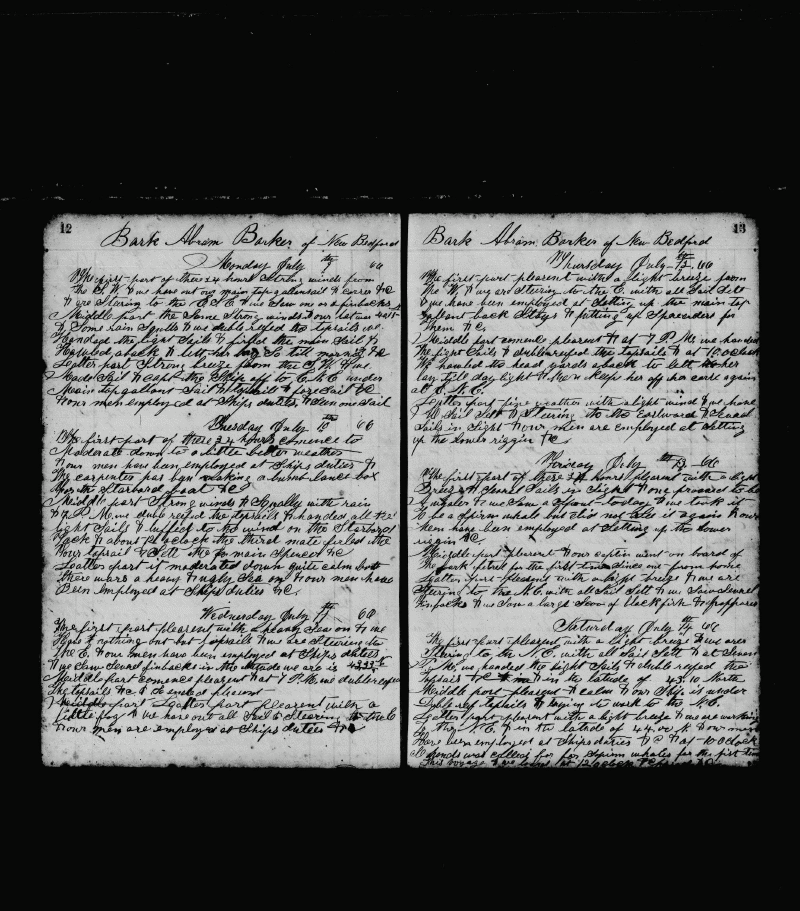 12
Bark Abram Barker of New Bedford
Monday July 9th 66
The first part of these 24 hours Strong winds from
the S. W. & we have out our main topgallantsail & corses &c
& are Stering to the E S E & we Saw one or a finbacks
Middle part the Same Strong winds
& Some rain Squlls & we duble reefed the topsails we
Handed the light Sails & firled the main Sail &
Hauled aback & let her lay So till morning &c
Latter part Strong breeze from the S. W. & we
Made Sail & kept the Ship off to E. N. E under
Main topgallant Sail & foresail &c
& our men employed at Ships duties & Seen one Sail
Tuesday July 10th 66
The first part of these 24 hours comence to
Moderate down to a little better weather
& our men have ben employed at Ships duties &
the carpenter has ben making a bumb lance box
for the Starboard boat &c
Middle part Strong winds & Squally with rain
& P. M. we duble reefed the topsails & handed all the
light Sails & luffed to the wind on the Starboard
Tack & about oclock the third mate firled the
four topsail & Sett the main Spencer &c
Latter part it moderated down quite calm but
there wars a heavy & ugly Sea on & our men have
Been Employed at Ships duties &c.
Wednesday July 11th 66
The first part pleasent with a heavy Sea on & we
Have nothing out but topsails & we are Stering to
the E. & our men have ben employed at Ships duties
& we Saw Severl finbacks in the latitude we are is
Middle part comence pleasent & at 7 P. M. we duble reefed
the topsails &c & it ended pleasent
Latter part pleasent with a
little fog & we have out all Sail & Steering to the E
& our men are employed at Ships duties &c
13
Bark Abram Barker of New Bedford
Thursday July 12th 66
The first part pleasent with a light breeze from
the W. & we are Stering to the E. with all Sail Sett
& we have been employed at Setting up the main top
gallent back Stays & fitting up Spaceders for
them &c.
Middle part comence pleasent & at 7 P. M. we handed
the light Sails & dublereefed the topsails & at 10 oclock
We hauled the head yards aback to lett her
lay till day light & then keep her off on corse again
at E. N. E.
Latter part fine weather with a light wind & we have
all Sail Sett & Stering to the Eastward &
Sails in Sight & our men are employed at Setting
up the lower riggin &c.
Friday July 13th 66
The first part of these 24 hours pleasent with a light
Breeze & Severl Sails in Sight & one proved to be
a whaler & we Saw a Spout to day & we took it
to be a Sperm whale but did not See it again & our
Men have been employed at Setting up the lower
riggin &c.
Middle part pleasent & our captin went on board of
the bark for the first time since from home
Latter part pleasent with a light breeze & we are
Stering to the N. E. with all Sail Sett & we Saw Severl
finbacks & we Saw a large Shoal of blackfish &
Saturday July 14th 66
The first part pleasent with a light breeze & we are
Stering to the N. E. with all Sails Sett & at Seven
P. M. we handed the light Sails & duble reefed the
topsails &c & in the latitude of 43.10 North
Middle part pleasent & calm & our Ship is under
Duble reef topsails & trying to work to the N. E.
Latter part pleasent with a light breeze & we are working
to the N. E. & in the latitude of 44.00 N & our men
Have been employed at Ships duties &c & at 10 Oclock
all hands was called for for Sperm whales for the first time
this voyage